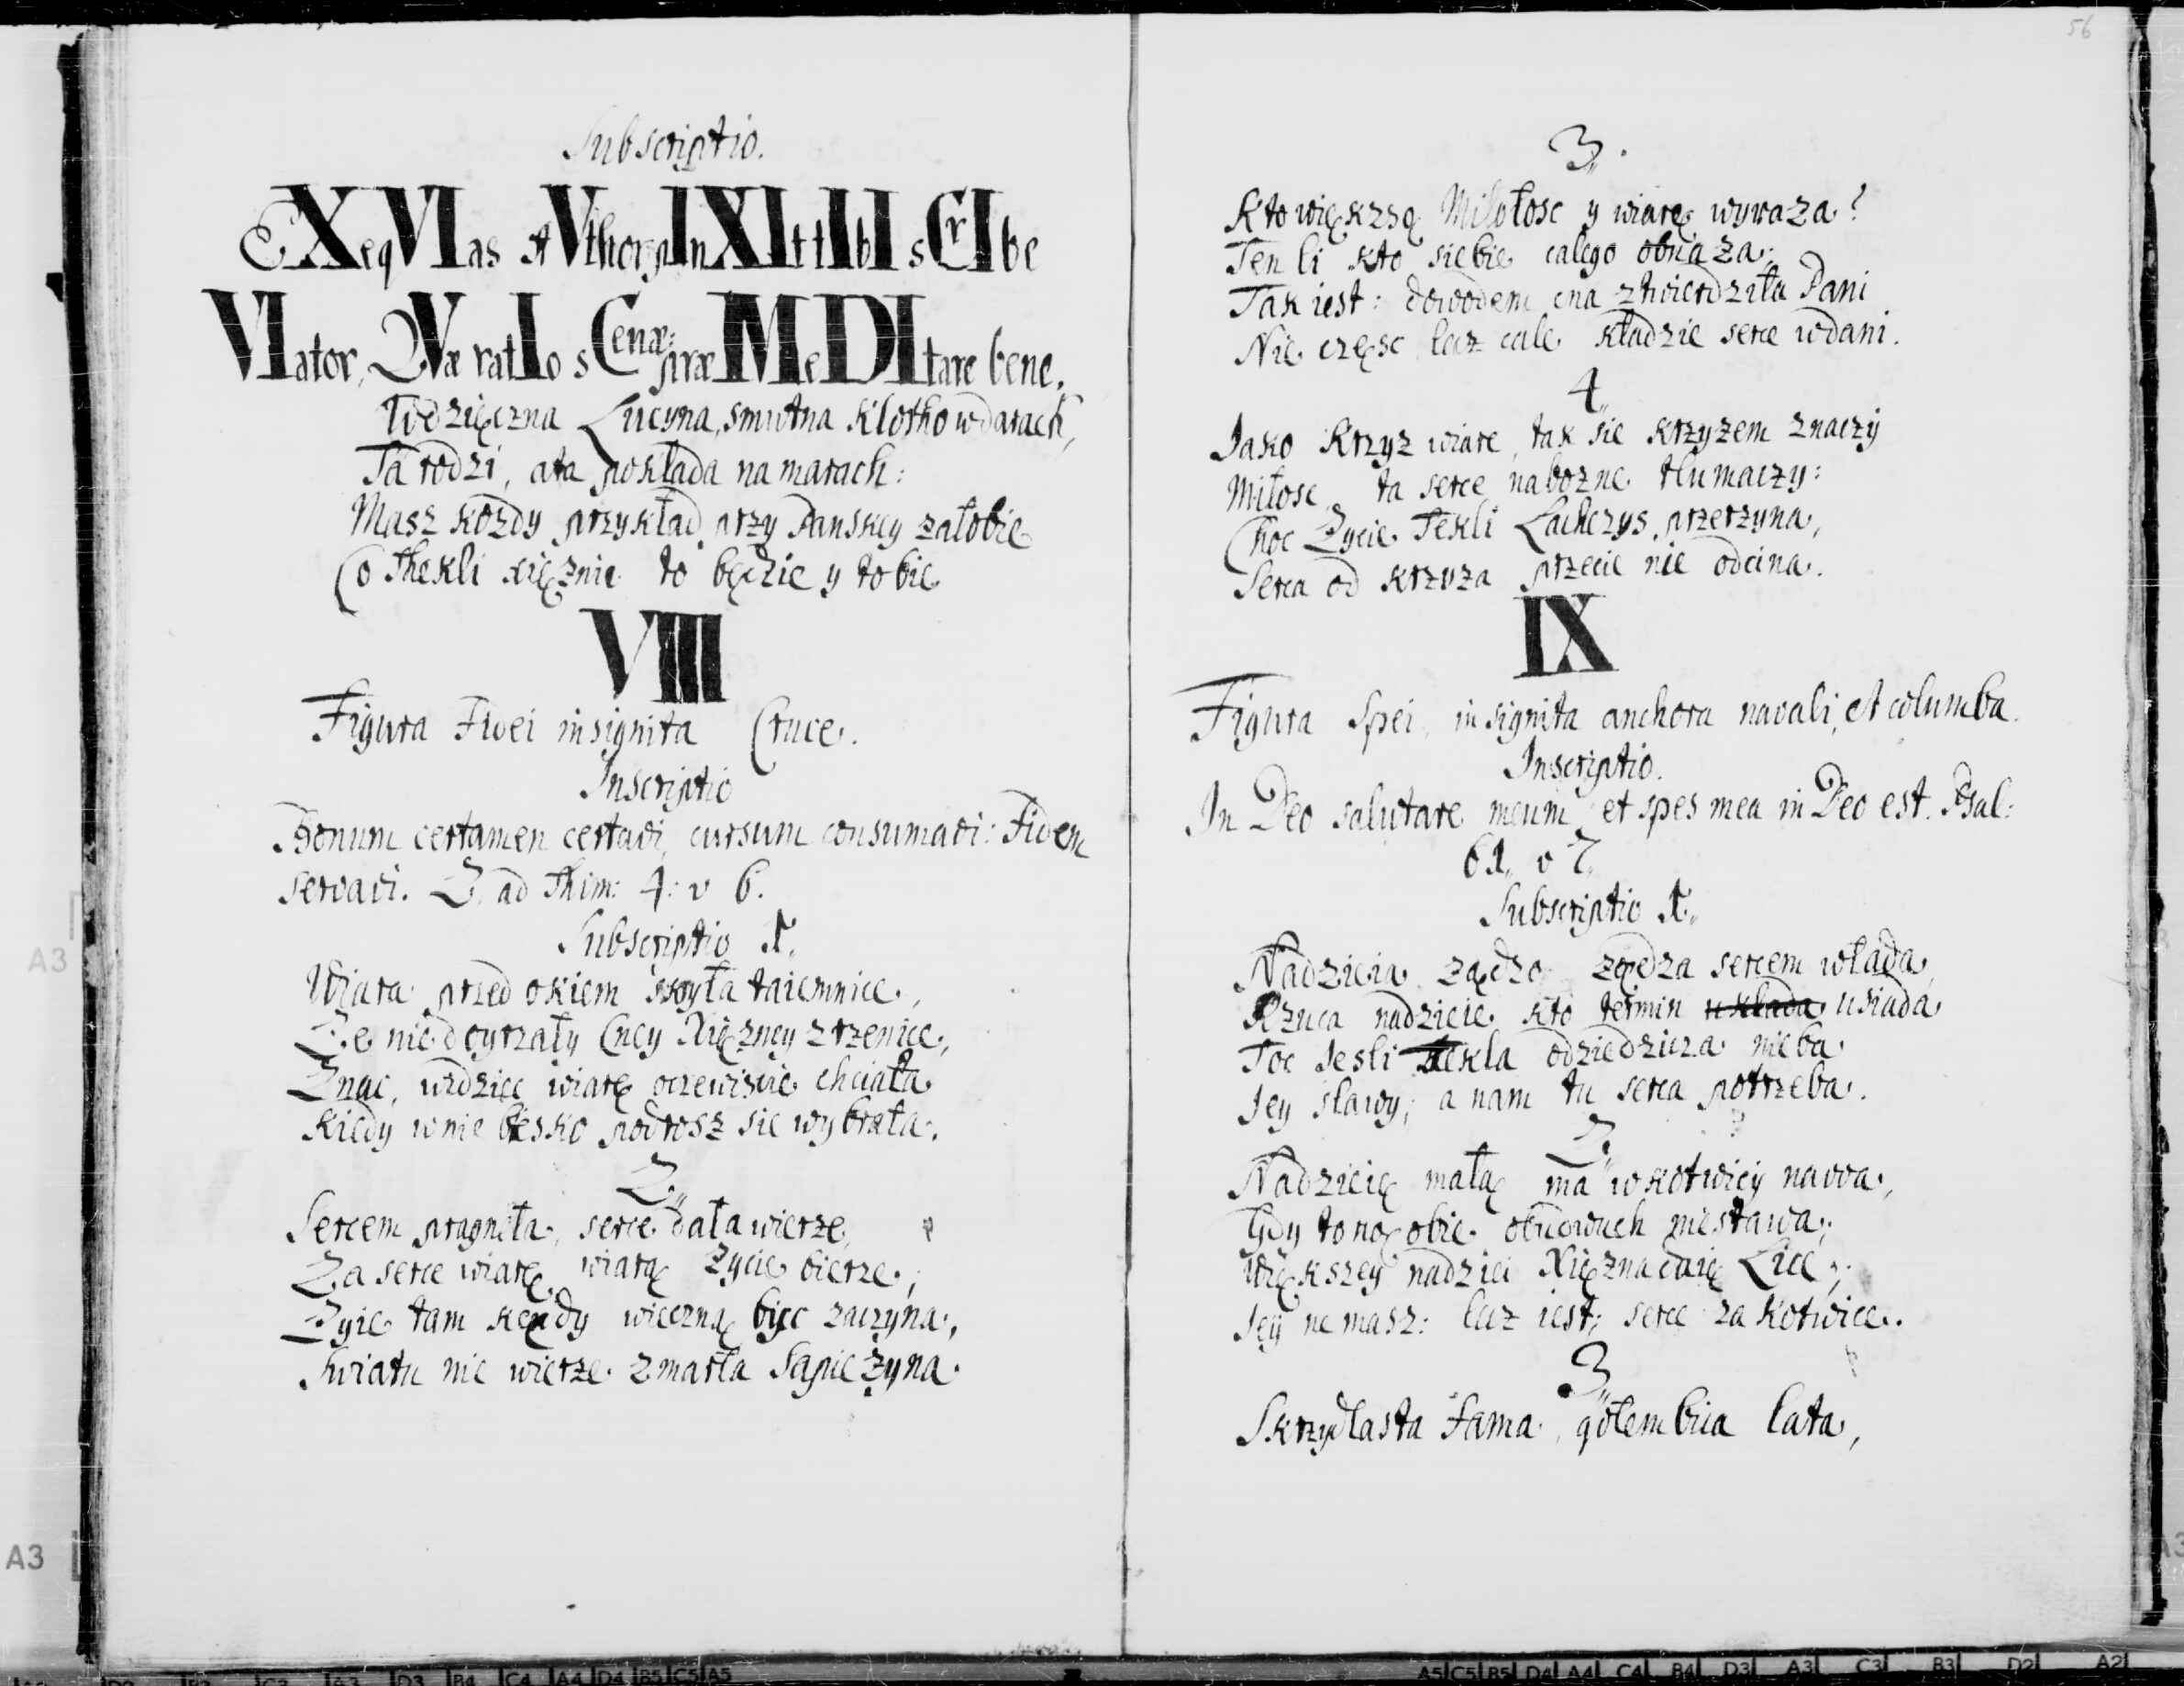 Subscriptio.
EXeqVIas AVthor pInXIt tIbI sCrIbe
VIator, QVæ ratIo sCenæ: præMeDItare bene.
Wdzięczna Lucyna, smutna Klotho w darach,
Ta rodzi, a ta pokłada na marach:
Masz kozdy przykład przy Panskey załobie
Co Thekli xięznie to będzie y tobie
VIII
Figura Fidei insignita Cruce.
Inscriptio
Bonum certamen certavi, cursum consumavi: Fidem
servavi. 2. ad Thim: 4: v 6.
Subscriptio 1.
Wiara przed okiem skryła taiemnice,
Ze nie doyrzały Cney Xięzney zrzenice,
Znac, widziec wiarę oczewiscie chciała
Kiedy w niebiesko podrosz sie wybrała.
2.
Sercem pragnęła, serce dała wierze,
Za serce wiarę, wiarą zycie bierze,
Zyie tam kędy wieczną byc zaczyna,
Swiatu nie wierze zmarła Sapiezyna.
56
3.
Kto większą Miłosc y wiarę wyraza?
Ten li kto siebie całego obnaza.
Tak iest: dowodem cna ztwierdziła Pani
Nie częsc lecz cale kładzie serce w dani.
4
Jako Krzyz wiare, tak sie krzyzem znaczy
Miłosc, ta serce nabozne tłumaczy:
Choc Zycie Tekli Lachezys przerzyna,
Serca od krzyza przecie nie odcina.
IX
Figura Spei, insignita anchora navali, et columba.
Inscriptio.
In Deo salutare meum et spes mea in Deo est. Psal:
61. v 7.
Subscriptio 1.
Nadzieia ządzo ządza sercem włada,
Rzuca nadzieie kto termin układa usiada
Toc Jesli Tekla odziedzicza nieba
Jey sławy, a nam tu serca potrzeba.
2.
Nadzieię małą ma w kotwicy nawa,
Gdy toną obie obudwuch niestawa,
Większey nadziei Xięzna daię Lice,
Jey ne masz: lecz iest, serce za Kotwice.
3
Skrzydlasta Fama, gołembica lata,